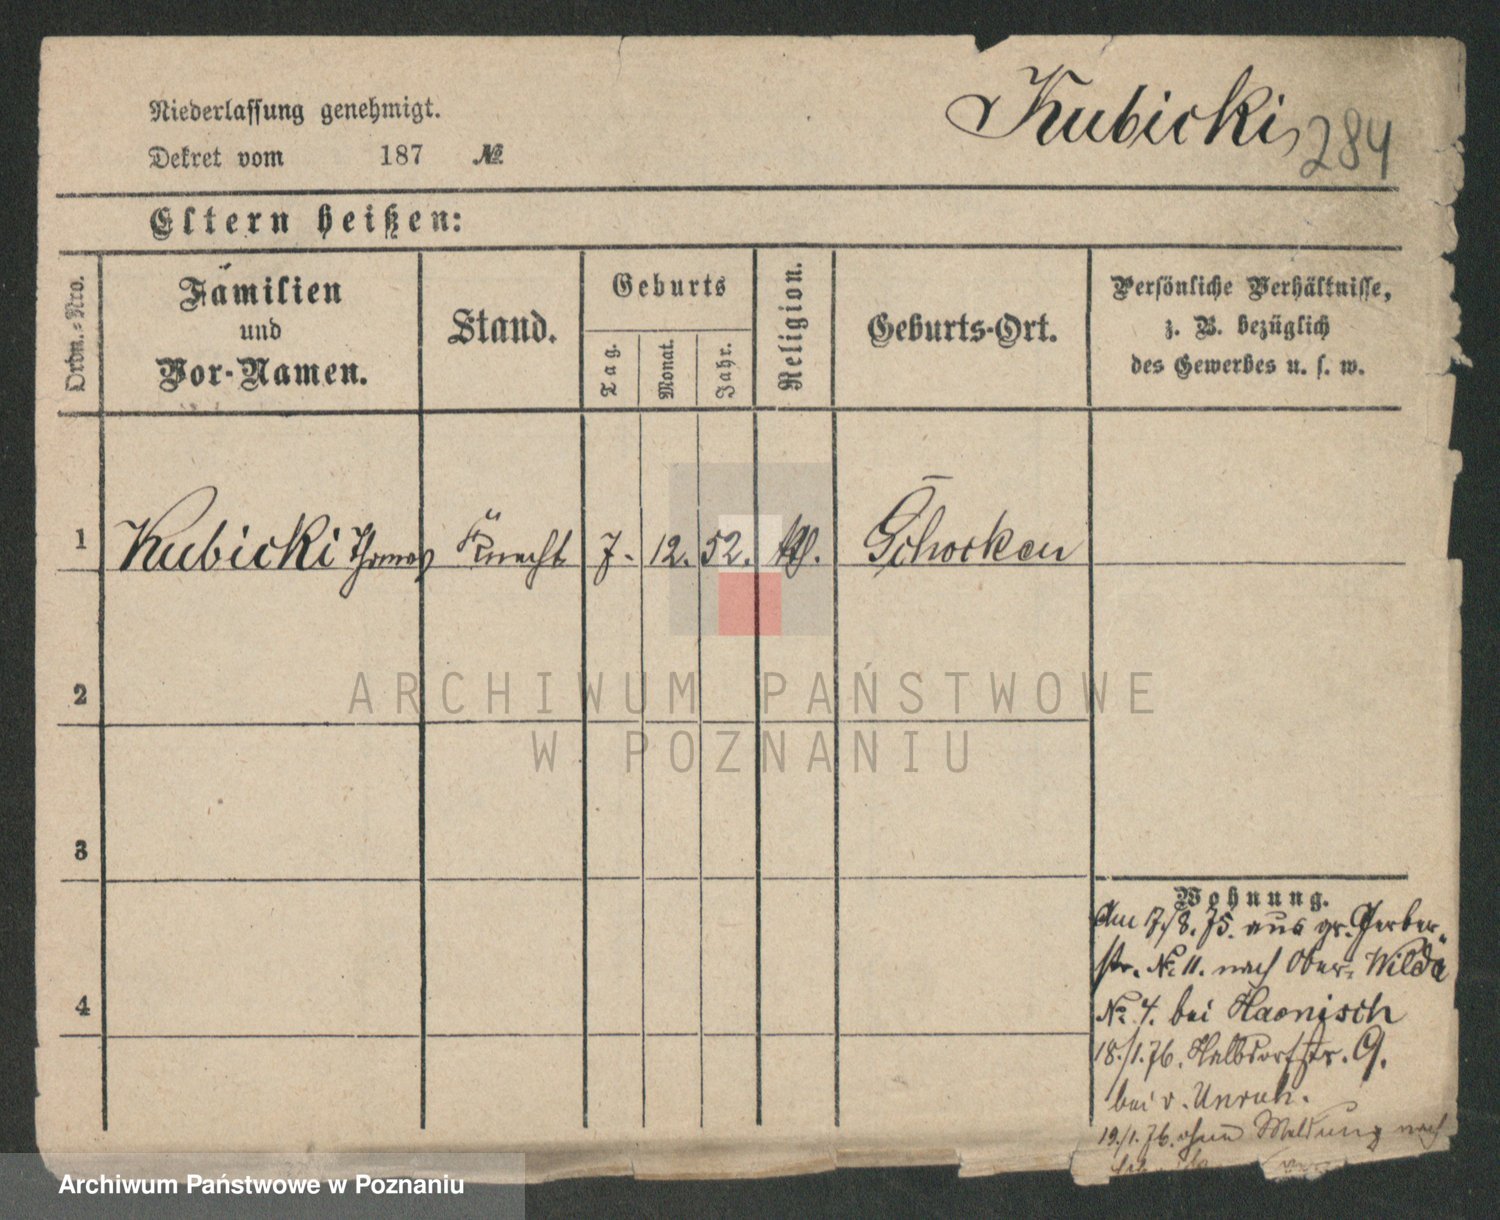 Kubicki, 284
Niederlassung genehmigt.
Dekret vom 187 №
Eltern heißen:
Ordn.-Nro.
Familien
und
Vor-Namen.
Stand.
Geburts
Tag.
Monat.
Jahr.
Religion.
Geburts-Ort.
Persönliche Verhältnisse,
z. B. bezüglich
des Gewerbes u. s. w.
1 Kubicki Thomas Knecht 7. 12. 52. kth. Schocken
2
3
4
Wohnung.
Am 17./8. 75. aus gr. Gerber-
str. No. 11. nach Ober-Wilda
No. 4. bei Haenisch
18./1. 76. Halbdorfstr. 9.
bei v. Unruh.
19./1. 76. ohne Meldung nach
ARCHIWUM PAŃSTWOWE
W POZNANIU
Archiwum Państwowe w Poznaniu